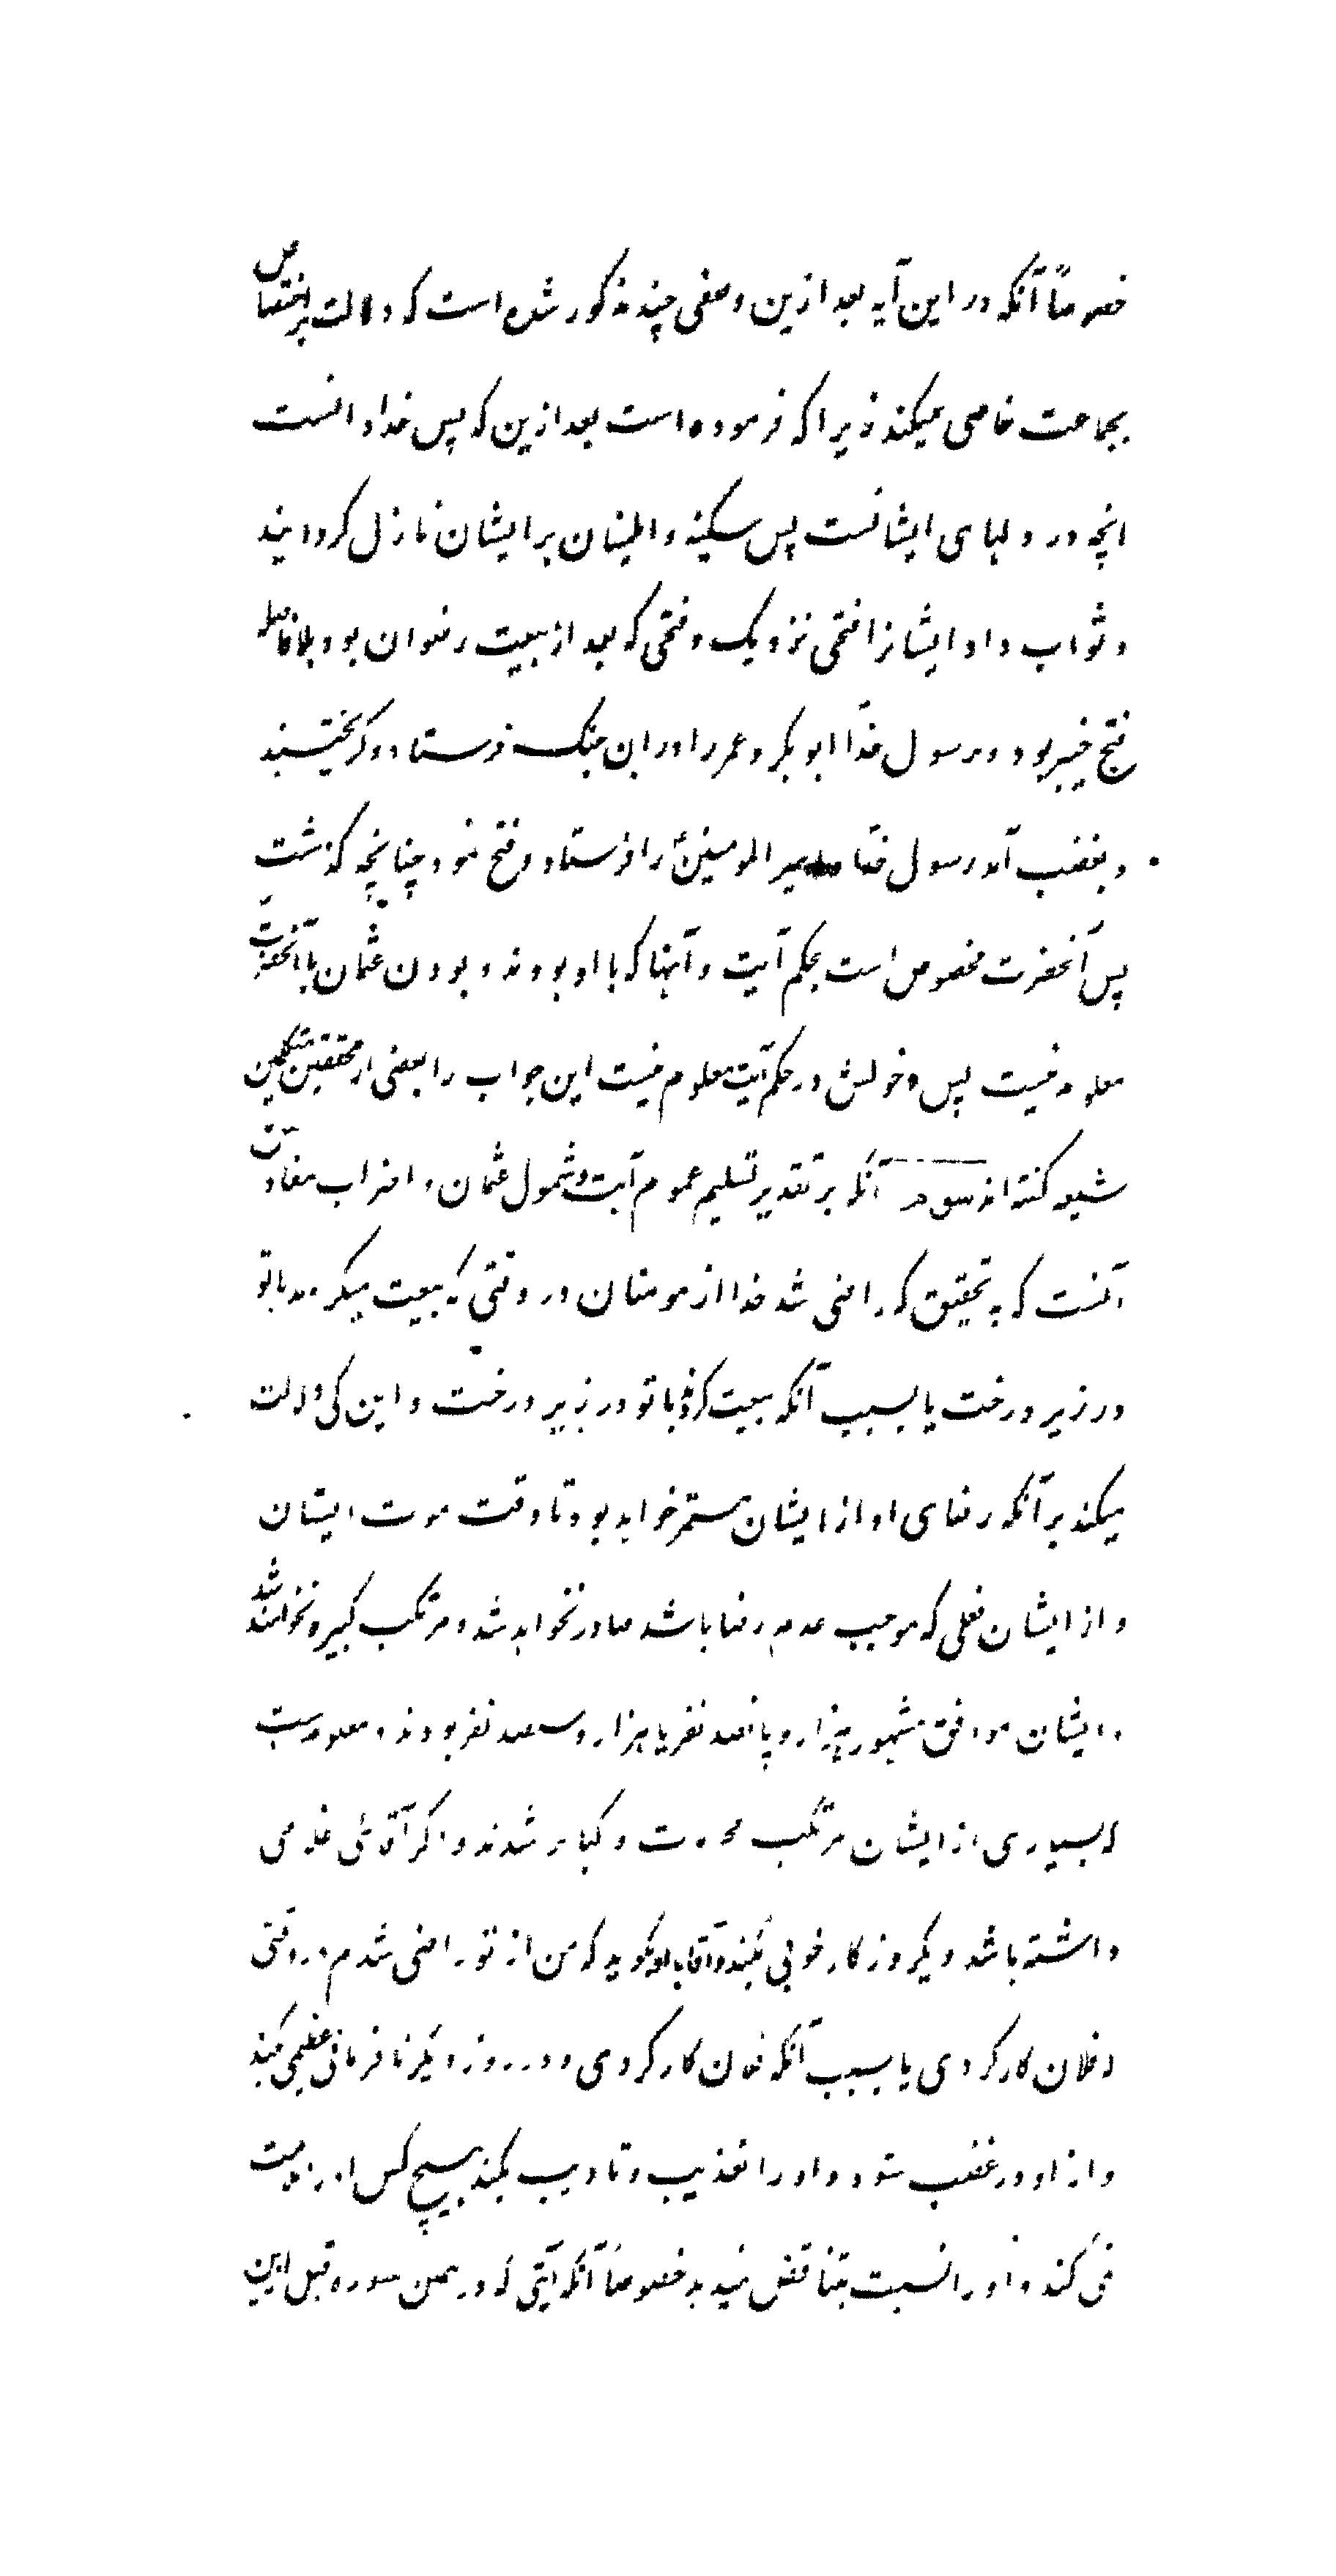 خصوصاً آنکه در این آیه بعد ازین وصفی چند مذکور شده است که دلالت بر اختصاص
بجماعت خاصی میکند زیرا که فرموده است بعد ازین که پس خدا دانست
انچه در دلهای ایشانست پس سکینه و اطمینان بر ایشان نازل کردانید
و ثواب داد ایشانرا فتحی نزدیک و فتحی که بعد از بیعت رضوان بود بلافاصله
فتح خیبر بود و رسول خدا ابو بکر و عمر را در ان جنک فرستاد و کریختند
و بغضب آمد رسول خدا امیر المومنین را فرستاد و فتح نمود چنانچه کذشت
پس آنحضرت مخصوص است بحکم آیت و آنها که با او بودند و بودن عثمان با آنحضرت
معلوم نیست پس دخولش در حکم آیت معلوم نیست این جواب را بعضی از محققین متکلمین
شیعه کفته اند سوم آنکه بر تقدیر تسلیم عموم آیت و شمول عثمان و اضراب مفاد آن
آنست که به تحقیق که راضی شد خدا از مومنان در وقتی که بیعت میکردند با تو
در زیر درخت یا بسبب آنکه بیعت کردند با تو در زیر درخت و این کی دلالت
میکند بر آنکه رضای او از ایشان مستمر خواهد بود تا وقت موت ایشان
و از ایشان فعلی که موجب عدم رضا باشد صادر نخواهد شد و مرتکب کبیره نخواهند شد
و ایشان موافق مشهور هزار و پانصد نفر یا هزار و سیصد نفر بودند و معلومست
که بسیاری از ایشان مرتکب محرمات و کبایر شدند و اکر آقائی غلامی
داشته باشد و یکروز کار خوبی بکند و آقا باو بکوید که من از تو راضی شدم در وقتی
که فلان کار کردی یا بسبب آنکه فلان کار کردی و در روز دیکر نافرمانی عظیمی بکند
و از او در غضب شود و او را تعذیب و تادیب بکند هیچ کس او را مذمت
نمی کند و او را نسبت بتناقض نمیدهد خصوصاً آنکه آیتی که در همین سوره قبل ازین